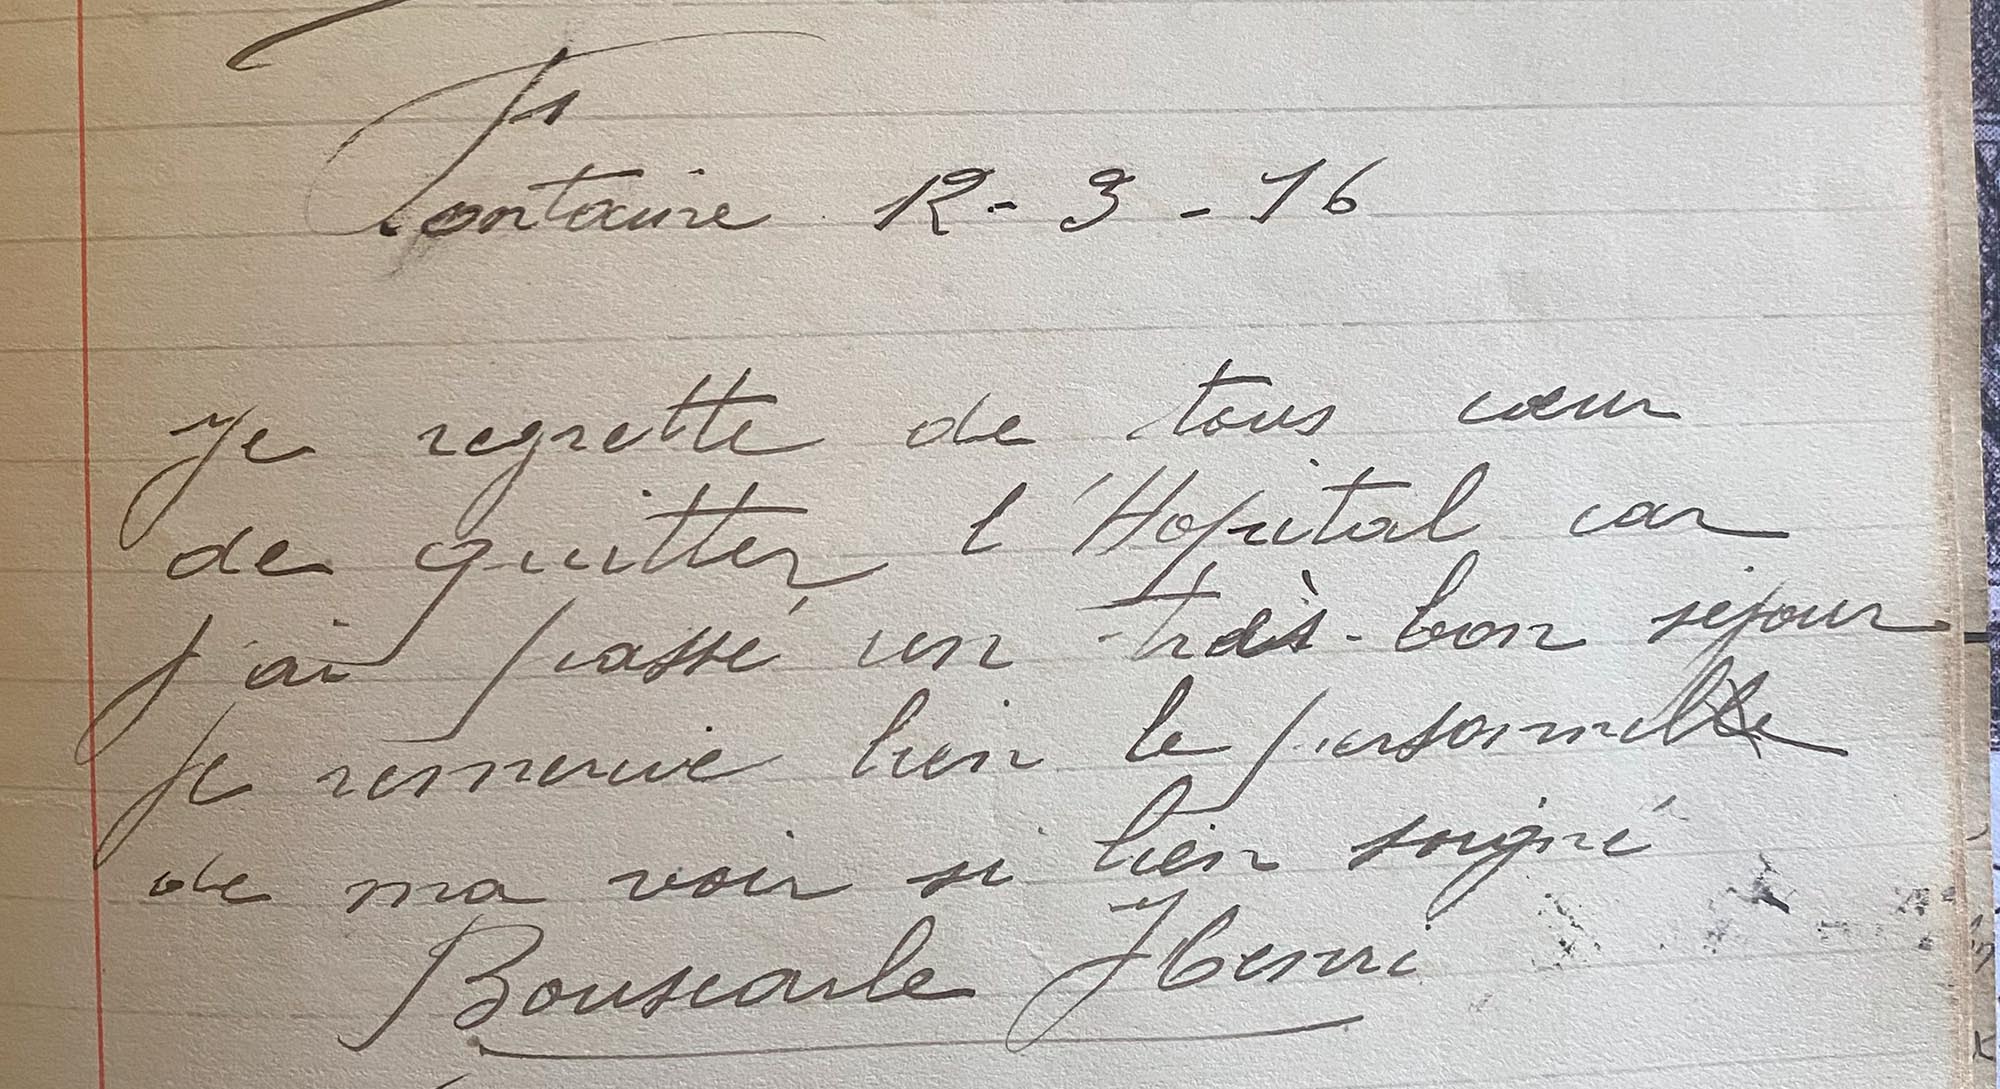 Fontaine 12-3-16
Je regrette de tous cœur
de quitter l'Hopital car
j'ai passé un très-bon sejour
Je remercie bien le personnel
de ma voir si bien soigné
Bouscarle Henri